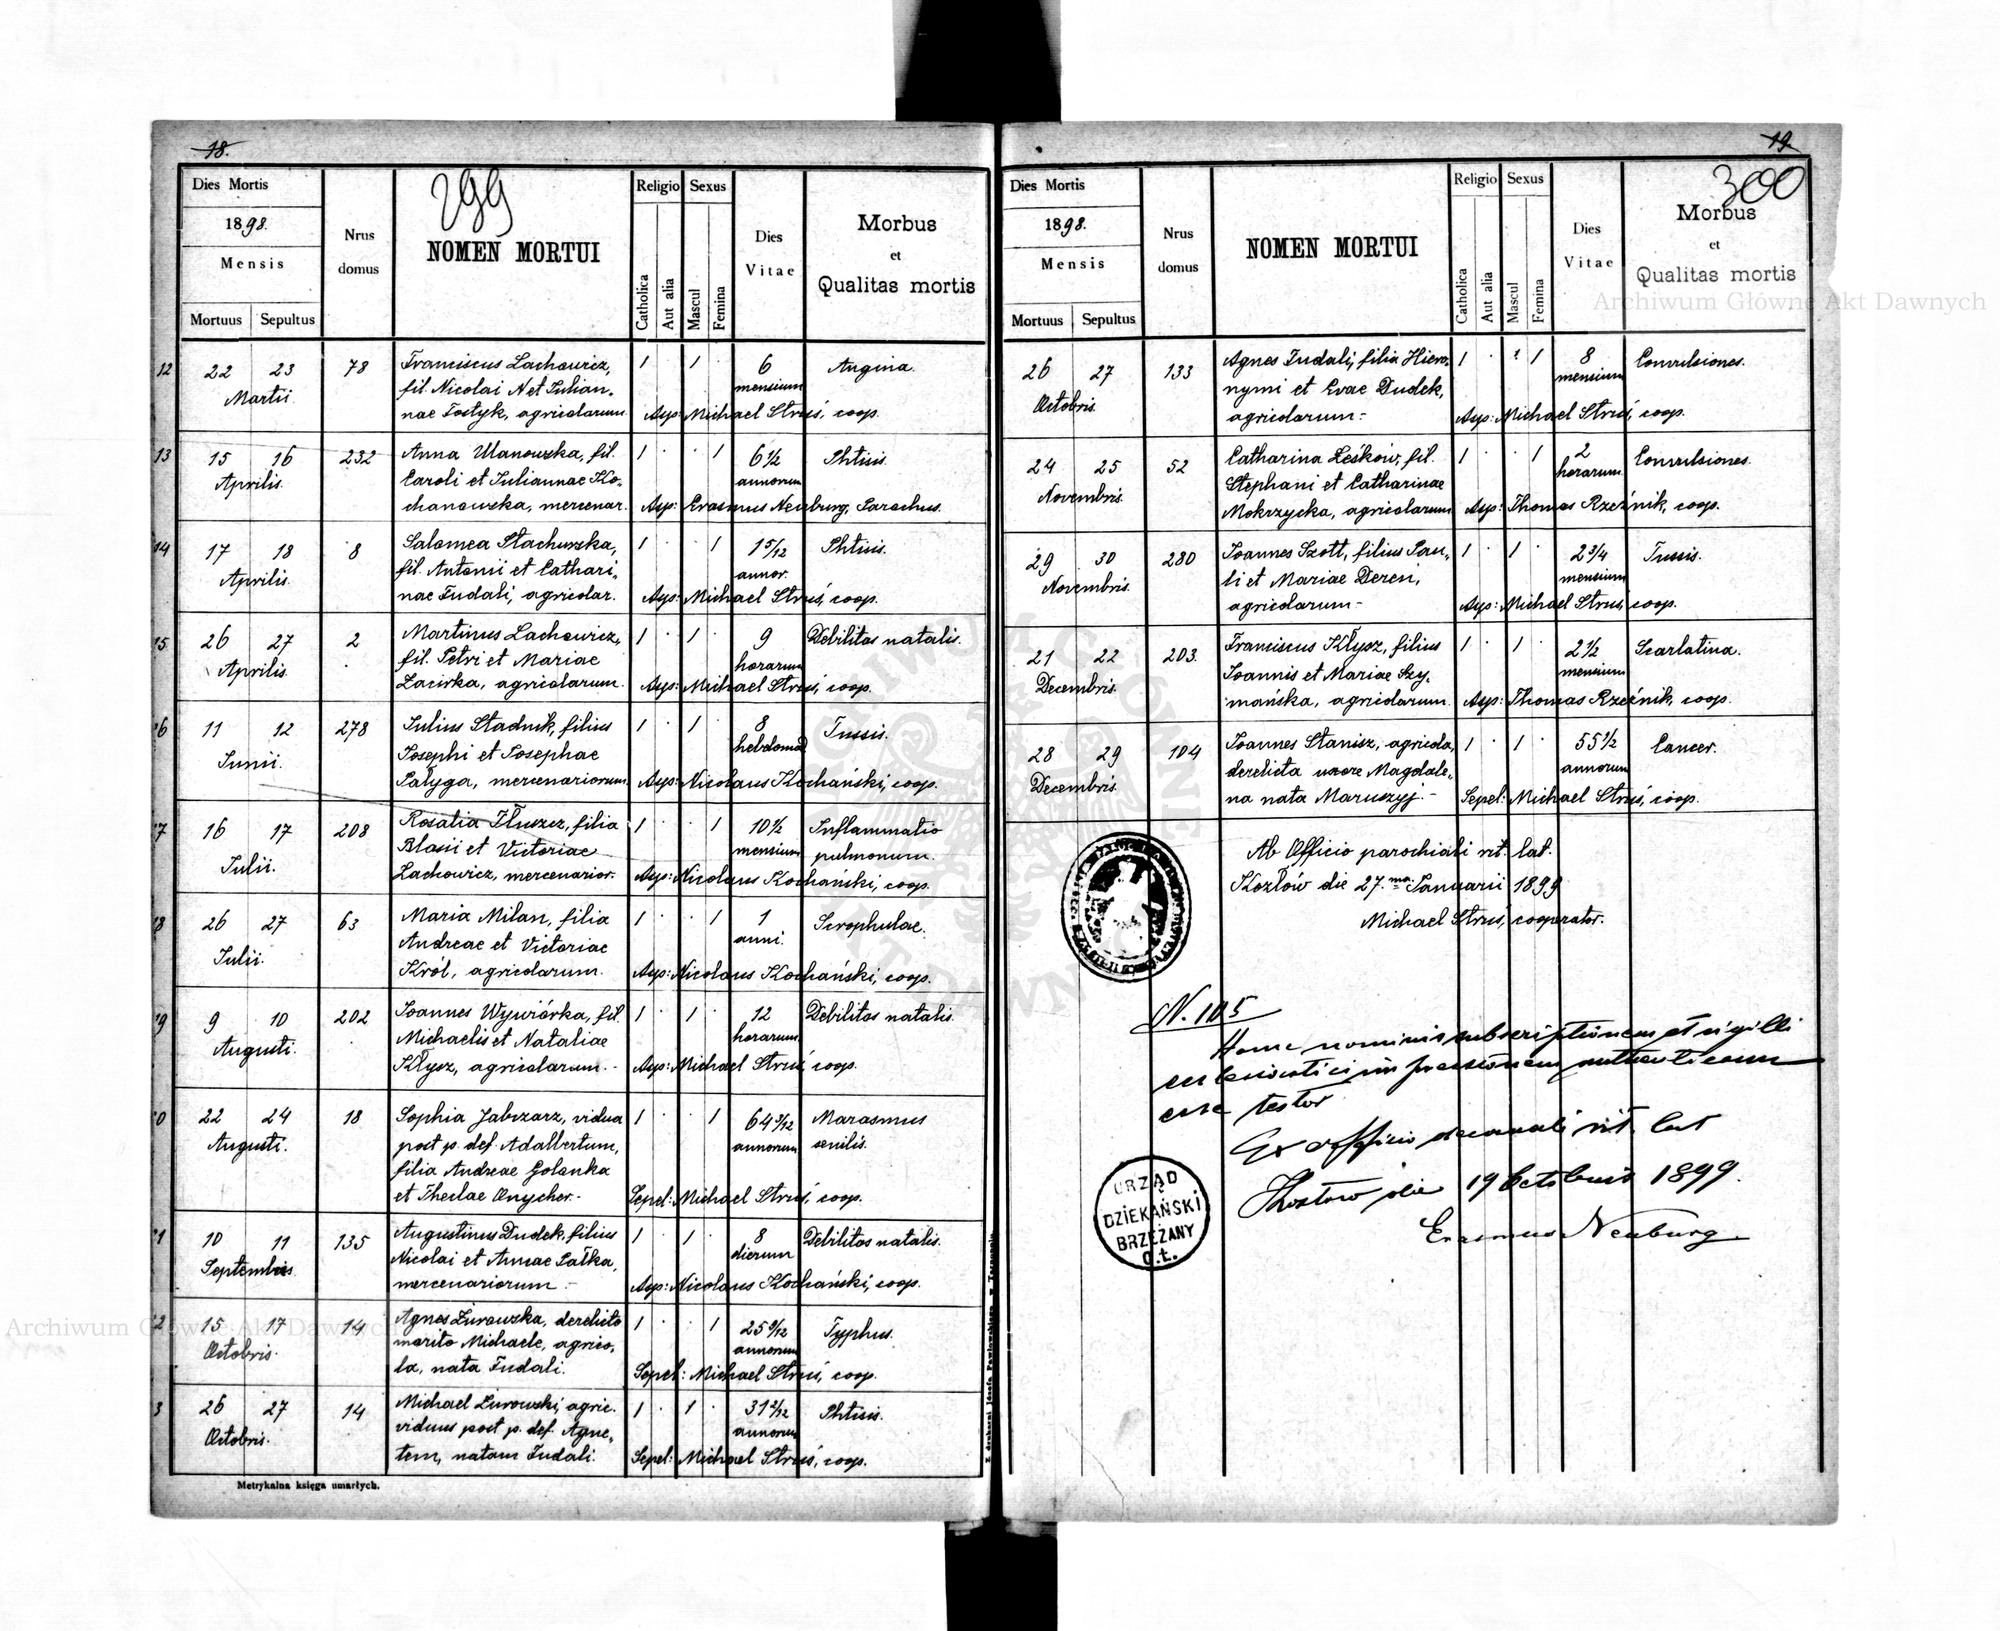 18.
299
Dies Mortis
1898.
Mensis
Mortuus Sepultus
Nrus domus
NOMEN MORTUI
Religio
Catholica
Aut alia
Sexus
Mascul
Femina
Dies Vitae
Morbus
et
Qualitas mortis
12 22 23 78 Franciscus Lachowicz, 1 · 1 · 6 Angina.
Martii. fil. Nicolai N et Julian- mensium
nae Tostyk, agricolarum Asp: Michael Struś, coop.
13 15 16 232 Anna Ulanowska, fil. 1 · · 1 6½ Phtisis.
Aprilis. Caroli et Juliannae Ko- annorum
chanowska, mercenar. Asp: Erasmus Neuburg, Parochus.
14 17 18 8 Salomea Stachurska, 1 · · 1 1 5/12 Phtisis.
Aprilis. fil. Antonii et Cathari- annor.
nae Dudali, agricolar. Asp: Michael Struś, coop.
15 26 27 2 Martinus Lachowicz, 1 · 1 · 9 Debilitas natalis.
Aprilis. fil. Petri et Mariae horarum
Zacirka, agricolarum. Asp: Michael Struś, coop.
16 11 12 278 Julius Stadnik, filius 1 · 1 · 8 Tussis.
Junii. Josephi et Josephae hebdomad
Pałyga, mercenariorum Asp: Nicolaus Kochański, coop.
17 16 17 208 Rosalia Tłuszcz, filia 1 · · 1 10½ Inflammatio
Julii. Blasii et Victoriae mensium pulmonum.
Lachowicz, mercenarior. Asp: Nicolaus Kochański, coop.
18 26 27 63 Maria Milan, filia 1 · · 1 1 Scrophulae.
Julii. Andreae et Victoriae anni.
Król, agricolarum. Asp: Nicolaus Kochański, coop.
19 9 10 202 Joannes Wywiórka, fil. 1 · 1 · 12 Debilitas natalis.
Augusti. Michaelis et Nataliae horarum
Kłysz, agricolarum. - Asp: Michael Struś, coop.
20 22 24 18 Sophia Jabczarz, vidua 1 · · 1 64 3/12 Marasmus
Augusti. post p. def. Adalbertum, annorum senilis.
filia Andreae Golanka
et Theclae Onycher. - Sepel: Michael Struś, coop.
21 10 11 135 Augustinus Dudek, filius 1 · 1 · 8 Debilitas natalis.
Septembris. Nicolai et Annae Pałka, dierum
mercenariorum - Asp: Nicolaus Kochański, coop.
22 15 17 14 Agnes Żurowska, derelicto 1 · · 1 25 9/12 Typhus.
Octobris. marito Michaele, agrico- annorum
la, nata Dudali. Sepel: Michael Struś, coop.
23 26 27 14 Michael Żurowski, agric. 1 · 1 · 31 2/12 Phtisis.
Octobris. viduus post p. def. Agne- annorum
tem, natam Dudali. Sepel: Michael Struś, coop.
Metrykalna księga umarłych.
Z drukarni Józefa Pawłowskiego w Tarnopolu
19.
300
Dies Mortis
1898.
Mensis
Mortuus Sepultus
Nrus domus
NOMEN MORTUI
Religio
Catholica
Aut alia
Sexus
Mascul
Femina
Dies Vitae
Morbus
et
Qualitas mortis
26 27 133 Agnes Dudali, filia Hiero- 1 · 1 8 Convulsiones.
Octobris. nymi et Evae Dudek, mensium
agricolarum - Asp: Michael Struś, coop.
24 25 52 Catharina Leśków, fil. 1 · · 1 2 Convulsiones.
Novembris. Stephani et Catharinae horarum
Mokrzycka, agricolarum Asp: Thomas Rzeźnik, coop.
29 30 280 Joannes Szott, filius Pau- 1 · 1 · 2¾ Tussis.
Novembris. li et Mariae Dereń, mensium
agricolarum - Asp: Michael Struś, coop.
21 22 203. Franciscus Kłysz, filius 1 · 1 · 2½ Scarlatina.
Decembris. Joannis et Mariae Szy- mensium
mańska, agricolarum. Asp: Thomas Rzeźnik, coop.
28 29 104 Joannes Stanisz, agricola, 1 · 1 · 55½ Cancer.
Decembris. derelicta uxore Magdale- annorum
na nata Maruszyj. - Sepel: Michael Struś, coop.
Ab Officio parochiali rit. lat.
Kozłów die 27.ma Januarii 1899
Michael Struś, cooperator.
N. 105
Hanc nominis subscriptionem et sigilli
ecclesiastici impressionem authenticam
esse testor
Ex officio decanali rit. lat
Kozłów die 19 Octobris 1899.
Erasmus Neuburg
URZĄD
DZIEKAŃSKI
BRZEŻANY
O.Ł.
Archiwum Główne Akt Dawnych
Archiwum Główne Akt Dawnych